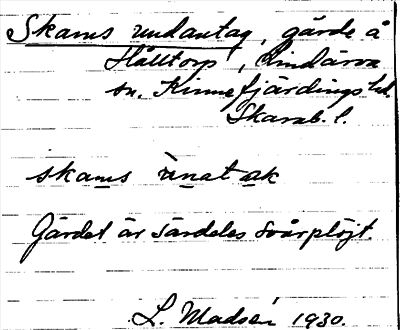 Skams undantag, gärde å
Hålltorp, Lindärva
sn. Kinnefjärdings hd.
Skarab. l.
skams ùnatak
Gärdet är särdeles svårplöjt.
L. Madsén 1930.